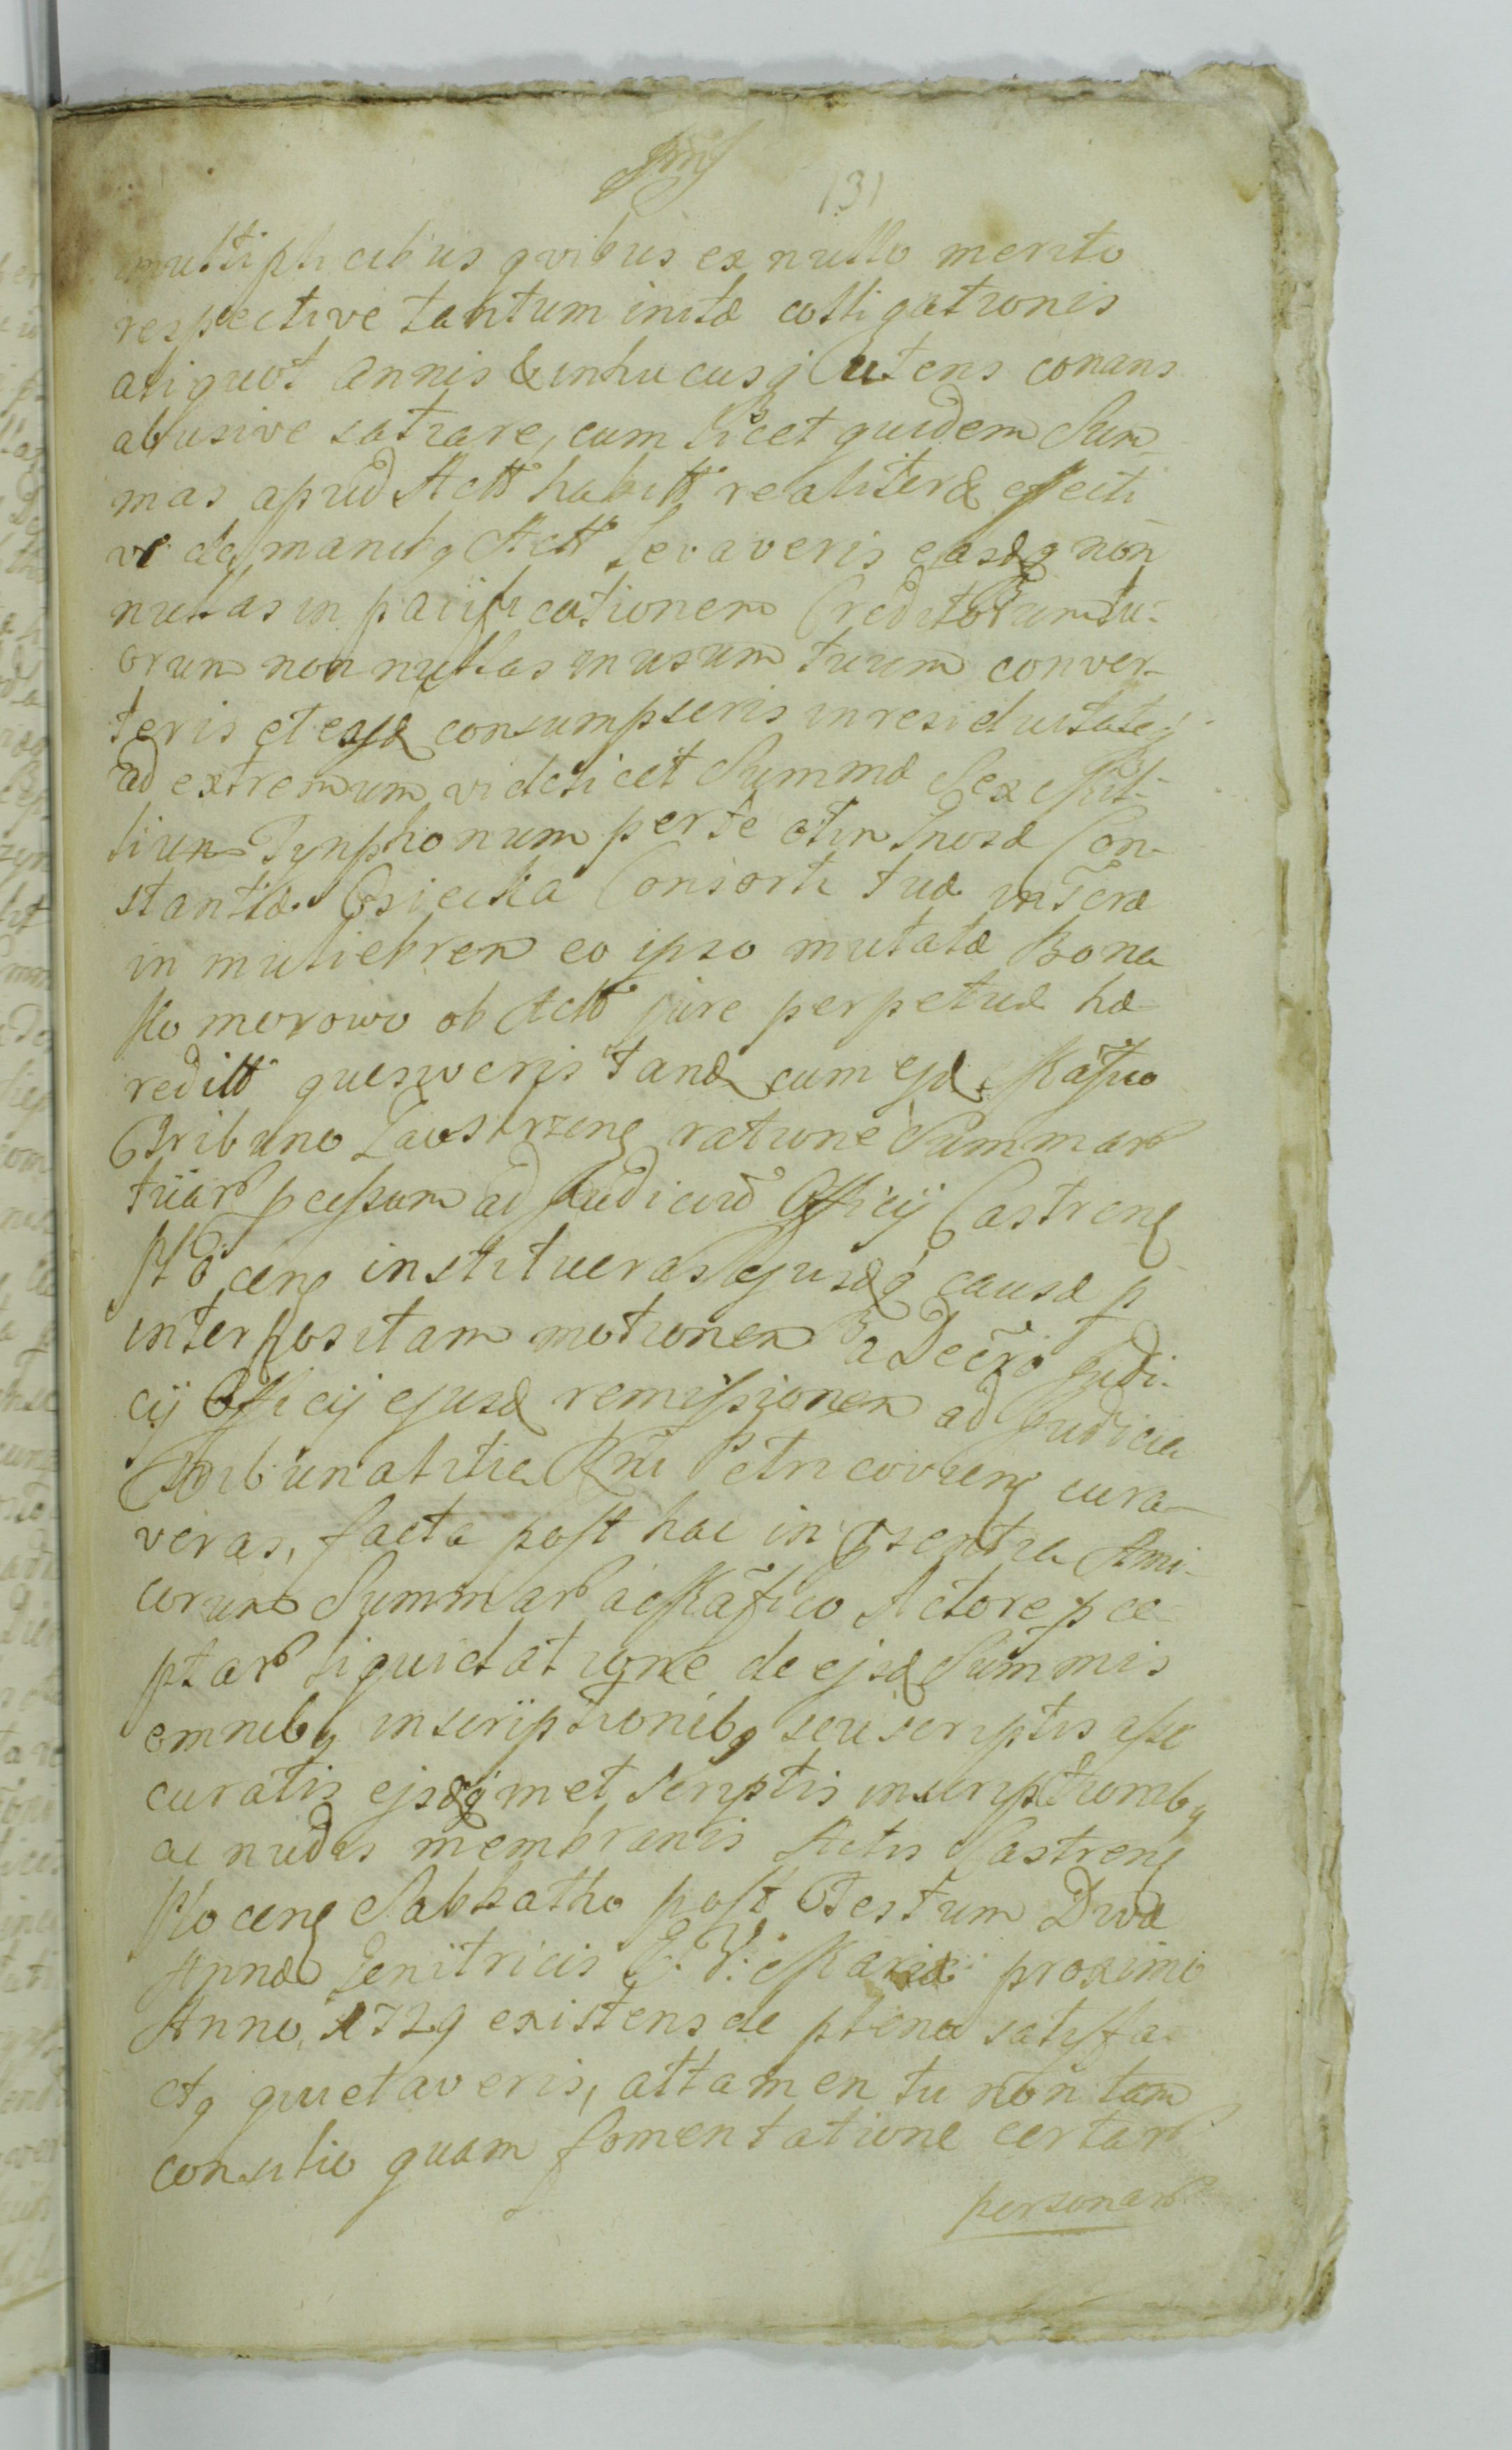 131
multiplicibus qvibus ex nullo merito
respective tantum initæ colligationis
aliquot annis & inhucusq utens conans
abusive satiare, cum licet quidem Sum
mas apud Actt habitt realiter & effecti
ve de manibq Actt levaveris easdq non
nullas in pacificationem Creditorum tu-
orum non nullas in usum tuum conver-
teris et easd consumpseris in residuitateq
ad extremum videlicet Summæ Sex Mil-
lium Tynphonum per te et Gnosæ Con-
stantiæ Osiecka Consorte tuæ
in muliebrem eo ipso mutatæ Bona
Komorowo ob Actt jure perpetuæ hæ
reditt quesiveris tand cum ejd Mãfico
Tribuno Zawskrzenȩ ratione Summarũ
tuarũ pcessum ad Judiciũ Officij Castrenȩ
Plocenȩ institueras Ejusdq causæ p
interpositam motionem a Decrõ Judi-
cij Officij ejusd remissionem ad Judicia
Tribunalitia Rñi Petricovienȩ cura-
veras, facta post hac in psentia Ami-
corum Summarũ a Mãfico Actore pce
ptarũ liquidatione de ejsd Summis
omnibq inscriptionibq seu scriptis asse
curatis ejsdq met scriptis inscriptionibq
ac nudis membranis Actis Castrenȩ
Plocenȩ Sabbatho post Festum Divæ
Annæ Genitricis B: V: Mariæ proximo
Anno 1729 existens de plena satisfa
ctq quietaveris, attamen tu non tam
consilio quam fomentatione certarũ
personarũ